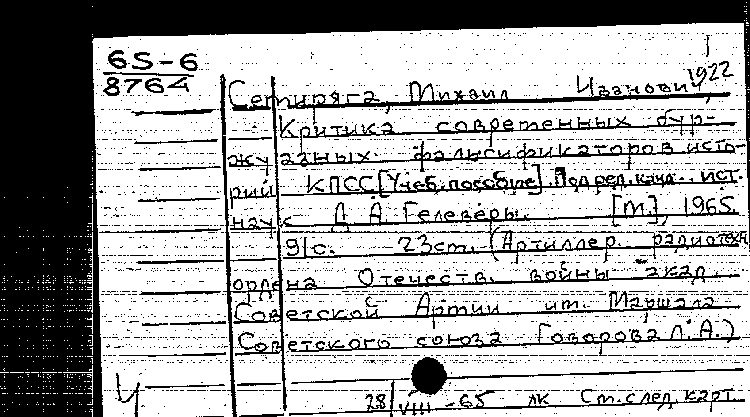 65-6
8764
1922
Семиряга, Михаил Иванович,
Критика современных бур-
жуазных фальсификаторов исто-
рий КПСС [Учеб. пособие]. Под ред. канд. ист.
наук Д. А. Гелеверы. [М.], 1965.
91 с. 23 см. (Артиллер. радиотехн
ордена Отечеств. войны акад.
Советской Армии им. Маршала
Советского союза Говорова Л. А.)
28/VIII-65 лк См. след. карт.